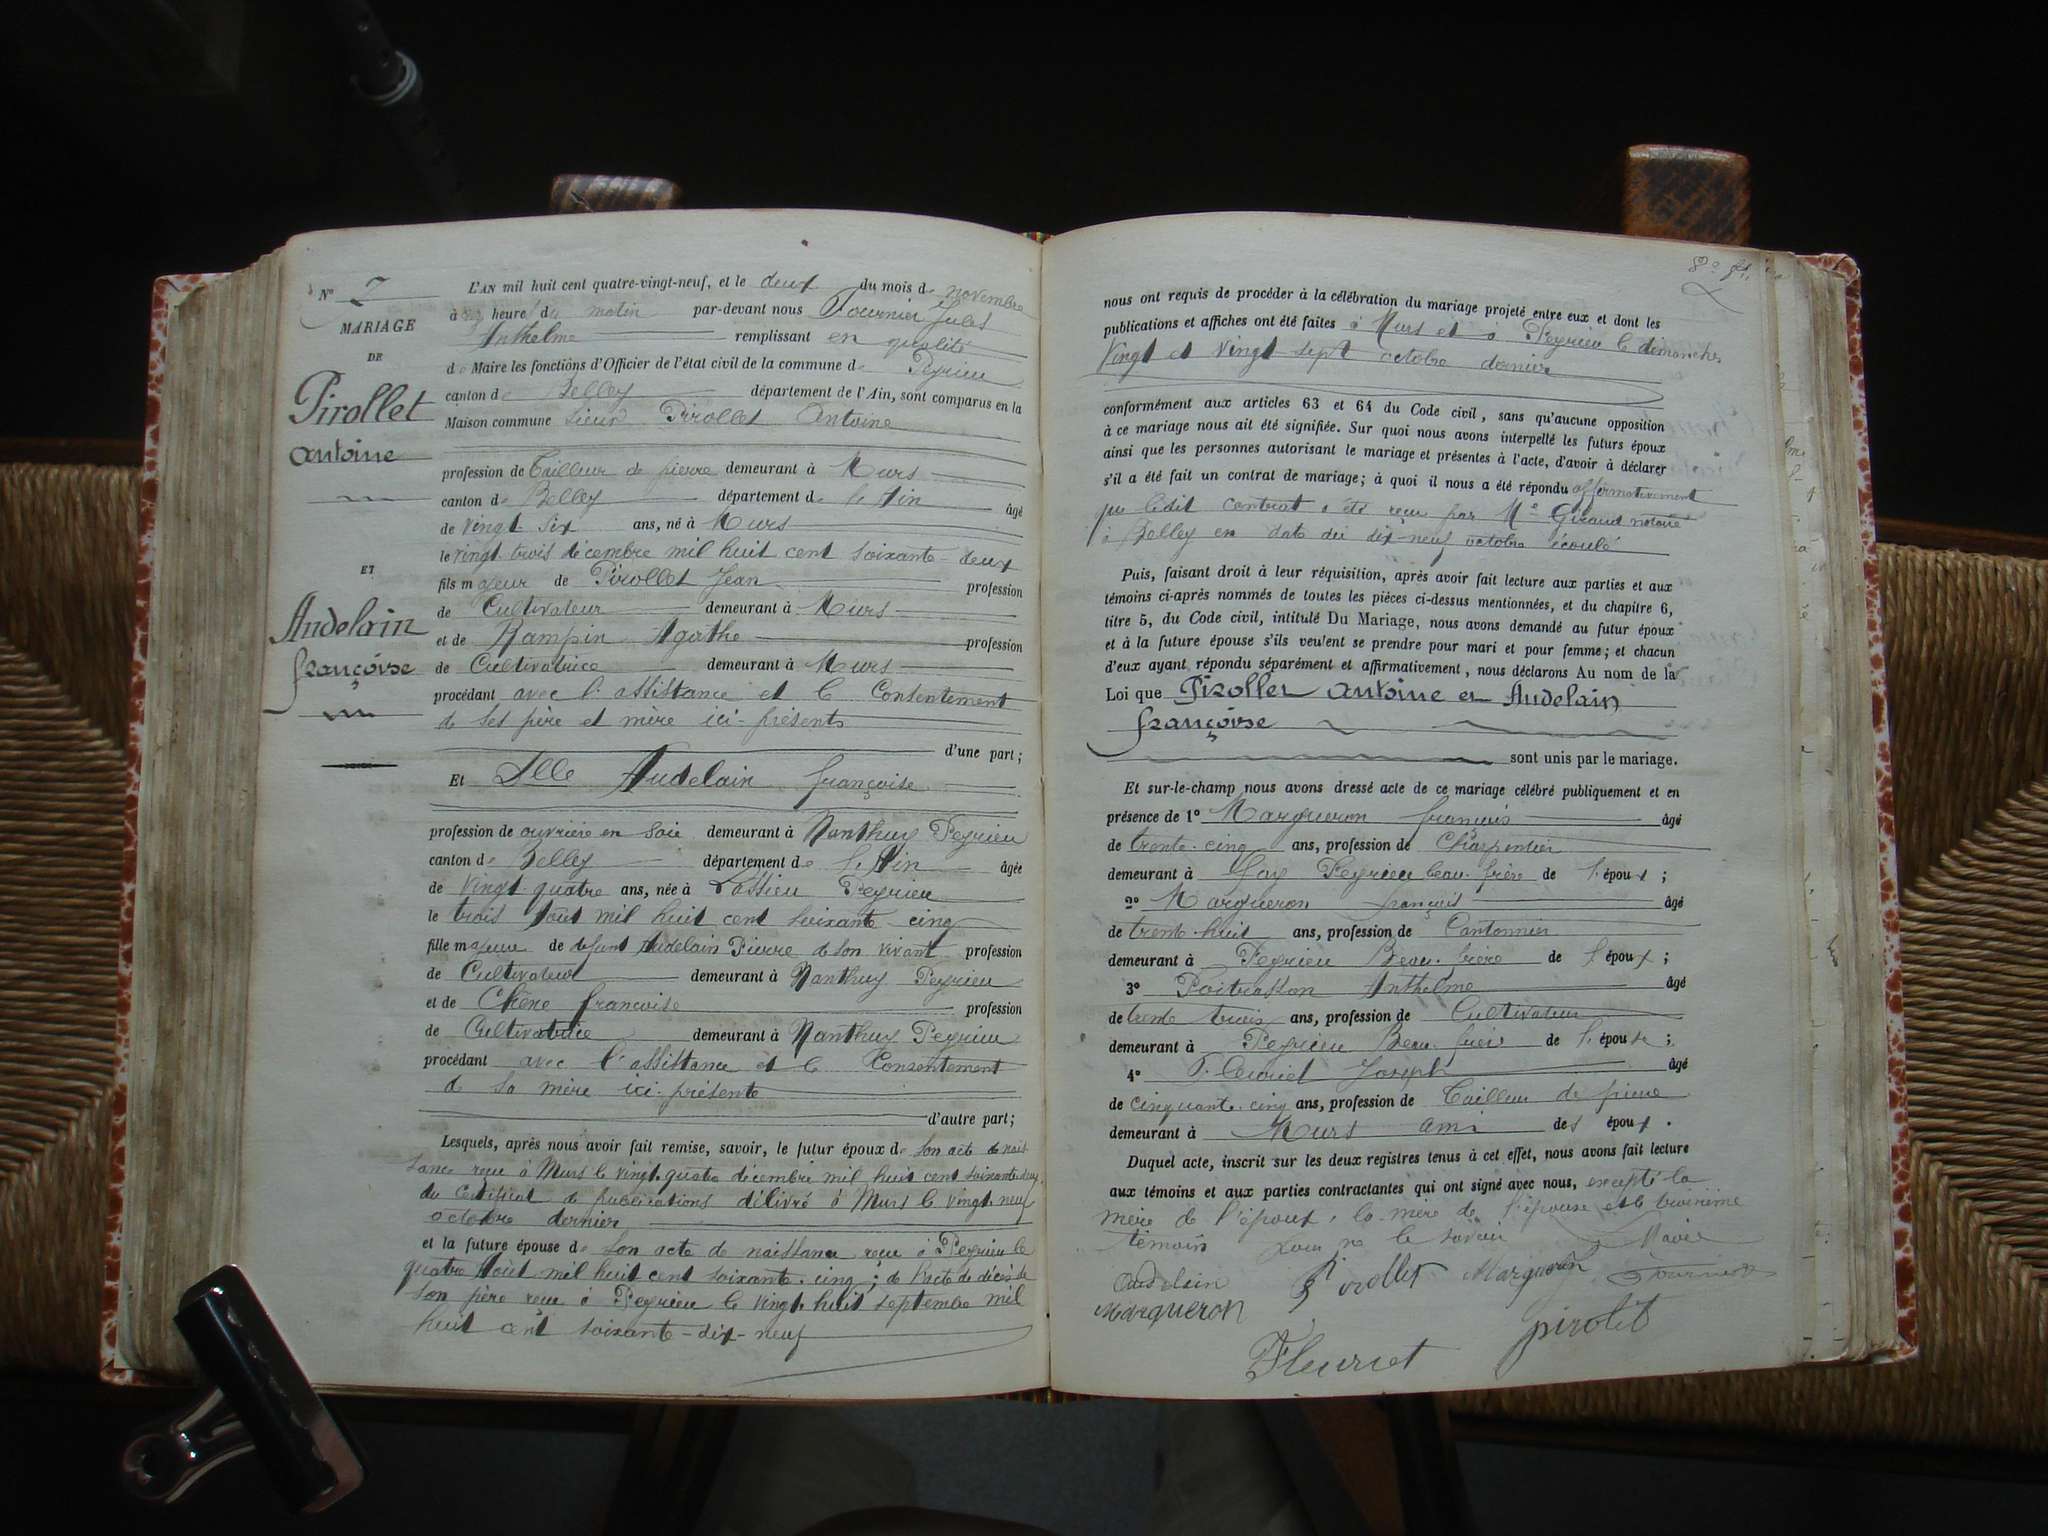 N° 7
MARIAGE
DE
Pirollet
Antoine
ET
Audelain
françoise
L'AN mil huit cent quatre-vingt-neuf, et le deux du mois de novembre
à heure du matin par-devant nous Fournier Jules
Anthelme remplissant en qualité
de Maire les fonctions d'Officier de l'état civil de la commune de Peyrieu
canton de Belley département de l'Ain, sont comparus en la
Maison commune Sieur Pirollet Antoine
profession de Tailleur de pierre demeurant à Murs
canton de Belley département de l'Ain âgé
de vingt six ans, né à Murs
le vingt trois décembre mil huit cent soixante-deux
fils majeur de Pirollet Jean profession
de Cultivateur demeurant à Murs
et de Rampin Agathe profession
de Cultivatrice demeurant à Murs
procédant avec l'assistance et le Consentement
de ses père et mère ici-présents
d'une part;
Et Dlle Audelain françoise
profession de ouvrière en soie demeurant à Nanthuy Peyrieu
canton de Belley département de l'Ain âgée
de vingt quatre ans, née à Lassieu Peyrieu
le trois Août mil huit cent soixante-cinq
fille majeure de défunt Audelain Pierre de son vivant profession
de Cultivateur demeurant à Nanthuy Peyrieu
et de Chêne françoise profession
de Cultivatrice demeurant à Nanthuy Peyrieu
procédant avec l'assistance et le Consentement
de sa mère ici-présente
d'autre part;
Lesquels, après nous avoir fait remise, savoir, le futur époux de son acte de nais-
sance reçu à Murs le vingt quatre décembre mil huit cent soixante deux,
du certificat de publications délivré à Murs le vingt-neuf
octobre dernier
et la future épouse de son acte de naissance reçu à Peyrieu le
quatre Août mil huit cent soixante-cinq; de l'acte de décès de
son père reçu à Peyrieu le vingt-huit septembre mil
huit cent soixante-dix-neuf
nous ont requis de procéder à la célébration du mariage projeté entre eux et dont les
publications et affiches ont été faites à Murs et à Peyrieu le dimanches
Vingt et Vingt-sept octobre dernier
conformément aux articles 63 et 64 du Code civil, sans qu'aucune opposition
à ce mariage nous ait été signifiée. Sur quoi nous avons interpellé les futurs époux
ainsi que les personnes autorisant le mariage et présentes à l'acte, d'avoir à déclarer
s'il a été fait un contrat de mariage; à quoi il nous a été répondu affirmativement
que ledit contrat a été reçu par Me Giraud notaire
à Belley en date du dix-neuf octobre écoulé
Puis, faisant droit à leur réquisition, après avoir fait lecture aux parties et aux
témoins ci-après nommés de toutes les pièces ci-dessus mentionnées, et du chapitre 6,
titre 5, du Code civil, intitulé Du Mariage, nous avons demandé au futur époux
et à la future épouse s'ils veulent se prendre pour mari et pour femme; et chacun
d'eux ayant répondu séparément et affirmativement, nous déclarons Au nom de la
Loi que Pirollet Antoine et Audelain
françoise
sont unis par le mariage.
Et sur-le-champ nous avons dressé acte de ce mariage célébré publiquement et en
présence de 1° Margueron françois âgé
de trente-cinq ans, profession de Charpentier
demeurant à Peyrieu beau-frère de l'époux;
2° Margueron françois âgé
de trente-huit ans, profession de Cantonnier
demeurant à Peyrieu Beau-frère de l'époux;
3° Poitrasson Anthelme âgé
de trente trois ans, profession de Cultivateur
demeurant à Peyrieu Beau-frère de l'épouse;
4° Fleuriet Joseph âgé
de cinquante-cinq ans, profession de Tailleur de pierre
demeurant à Murs ami des époux.
Duquel acte, inscrit sur les deux registres tenus à cet effet, nous avons fait lecture
aux témoins et aux parties contractantes qui ont signé avec nous, excepté la
mère de l'époux, la mère de l'épouse et le troisième
témoin pour ne le savoir
Audelain Pirollet Margueron Fournier
Margueron pirolet
Fleuriet